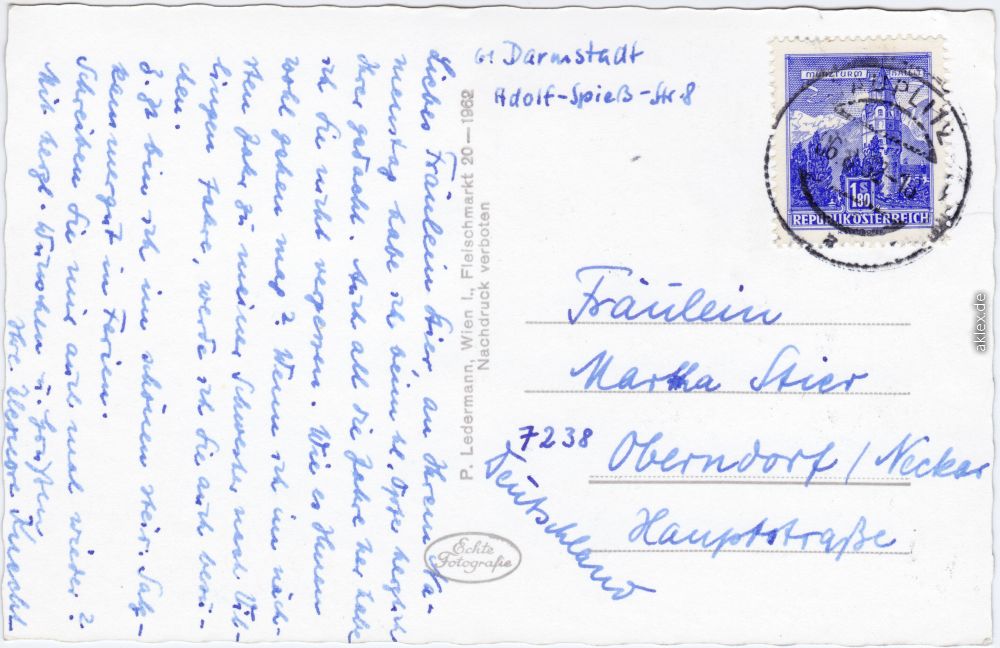 61 Darmstadt
Adolf-Spieß-Str. 8
Liebes Fräulein Stier, an Ihrem Na-
menstag habe ich beim hl. Opfer herzlich
Ihrer gedacht. Auch all die Jahre her habe
ich Sie nicht vergessen. Wie es Ihnen
wohl gehen mag? Wenn ich im näch-
sten Jahr zu meiner Schwester nach Vil-
lingen fahre, werde ich Sie auch besu-
chen.
Z. Zt. bin ich im schönen steir. Salz-
kammergut in Ferien.
Schreiben Sie mir auch mal wieder?
Mit herzl. Wünschen u. Grüßen
Ihre Knecht
P. Ledermann, Wien I., Fleischmarkt 20—1962
Nachdruck verboten
Echte
Fotografie
MÜNZTURM
1.80
S
REPUBLIK ÖSTERREICH
Fräulein
Martha Stier
7238
Oberndorf / Neckar
Hauptstraße
Deutschland
aklex.de